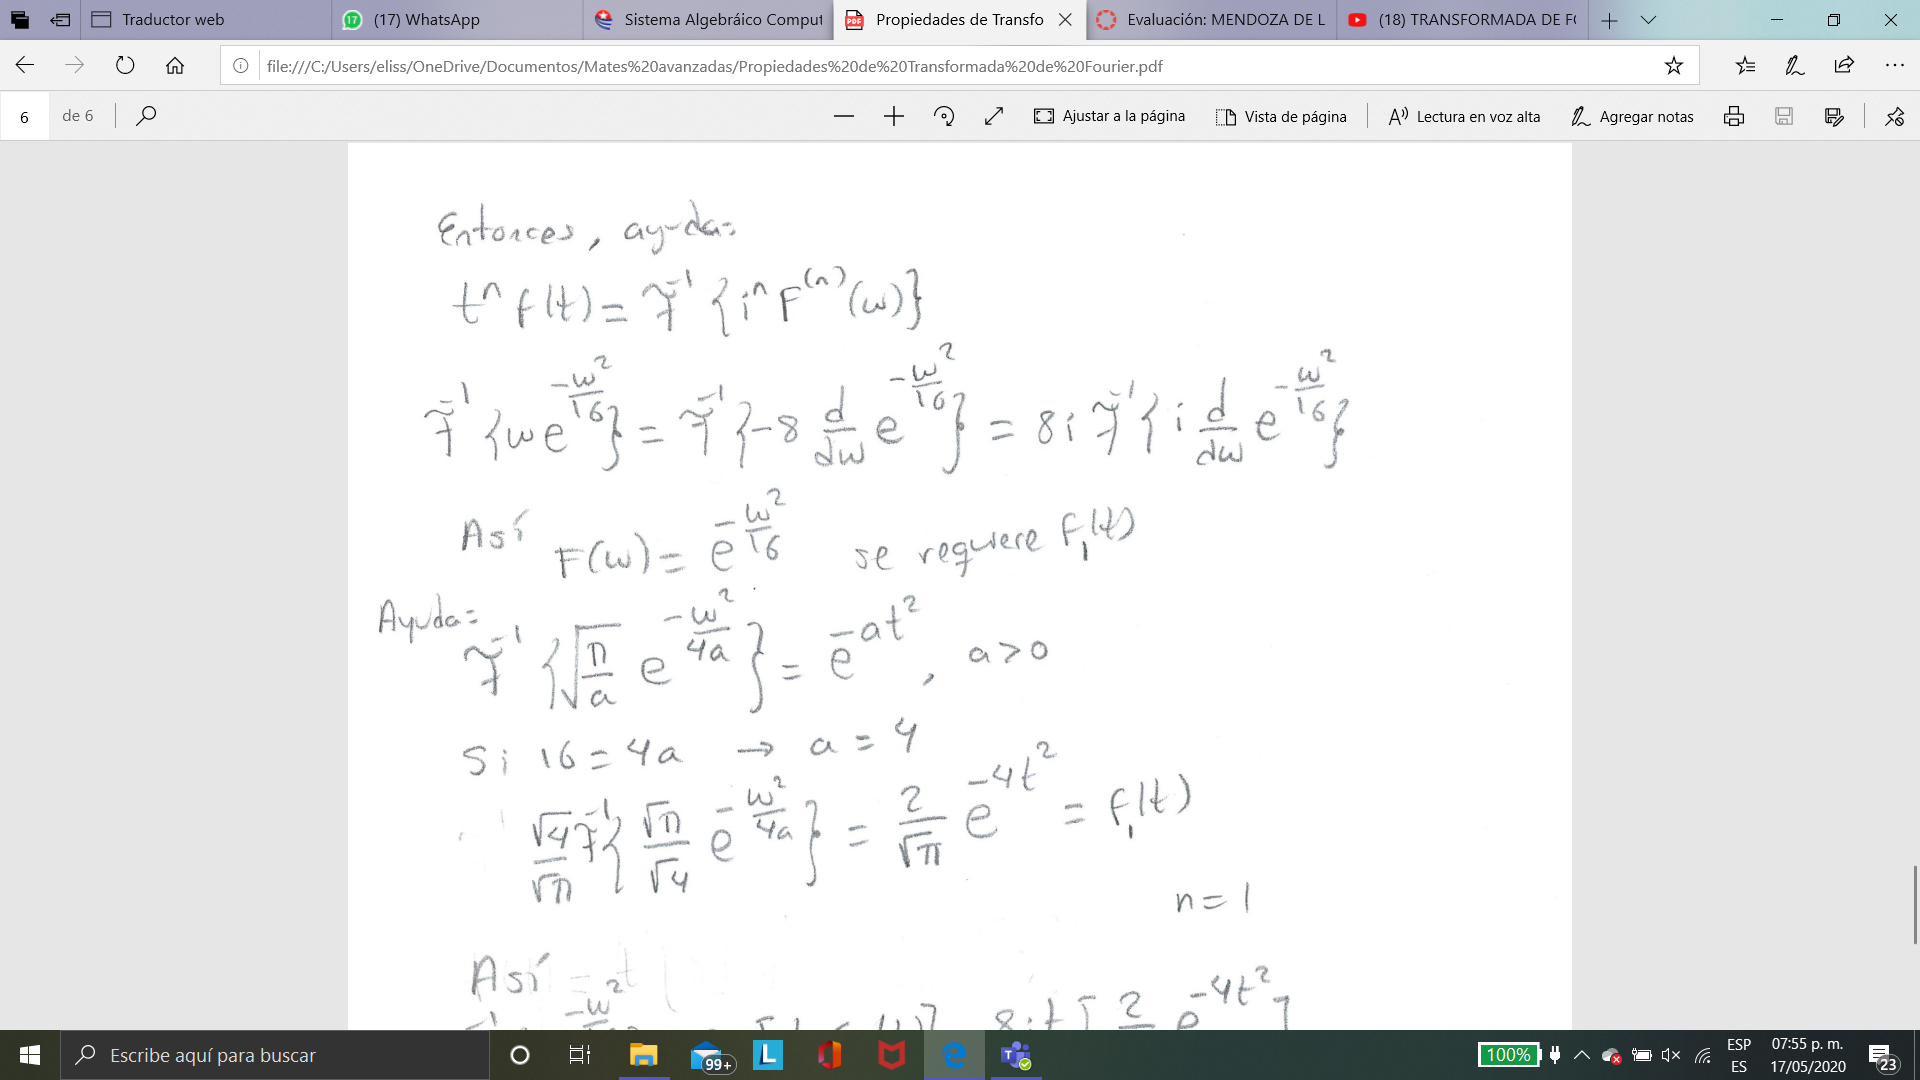 Traductor web
(17) WhatsApp
Sistema Algebráico Comput
Propiedades de Transfo
Evaluación: MENDOZA DE L
(18) TRANSFORMADA DE FO
file:///C:/Users/eliss/OneDrive/Documentos/Mates%20avanzadas/Propiedades%20de%20Transformada%20de%20Fourier.pdf
6 de 6
Ajustar a la página
Vista de página
Lectura en voz alta
Agregar notas
Entonces, ayuda:
t^n f(t) = F^-1 {i^n F^(n)(w)}
F^-1 {w e^(-w^2/16)} = F^-1 {-8 d/dw e^(-w^2/16)} = 8i F^-1 {i d/dw e^(-w^2/16)}
Así F(w) = e^(-w^2/16) se requiere f₁(t)
Ayuda:
F^-1 {√(π/a) e^(-w^2/4a)} = e^(-at^2), a>0
Si 16 = 4a → a = 4
√4/√π F^-1 {√π/√4 e^(-w^2/4a)} = 2/√π e^(-4t^2) = f₁(t)
n = 1
Así
8it [2 e^(-4t^2)]
Escribe aquí para buscar
99+
100%
ESP
ES
07:55 p. m.
17/05/2020
23